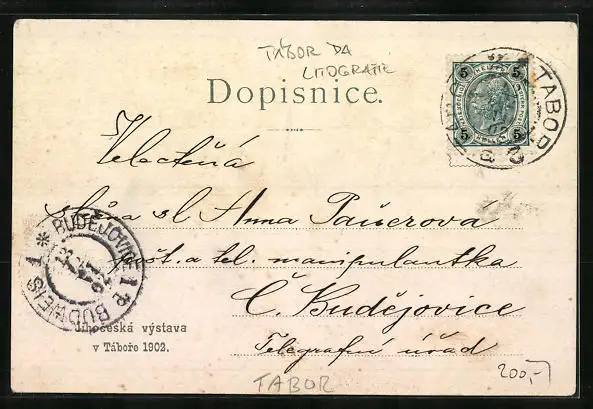 TÁBOR DA
LITOGRAFIE
Dopisnice.
5 5
5 5
TABOR
Velactěná
slečna sl Anna Pauerová
pošt. a tel. manipulantka
Č. Budějovice
Telegrafní úřad
BUDĚJOVICE
BUDWEIS 1
Jihočeská výstava
v Táboře 1902.
TABOR
200,-